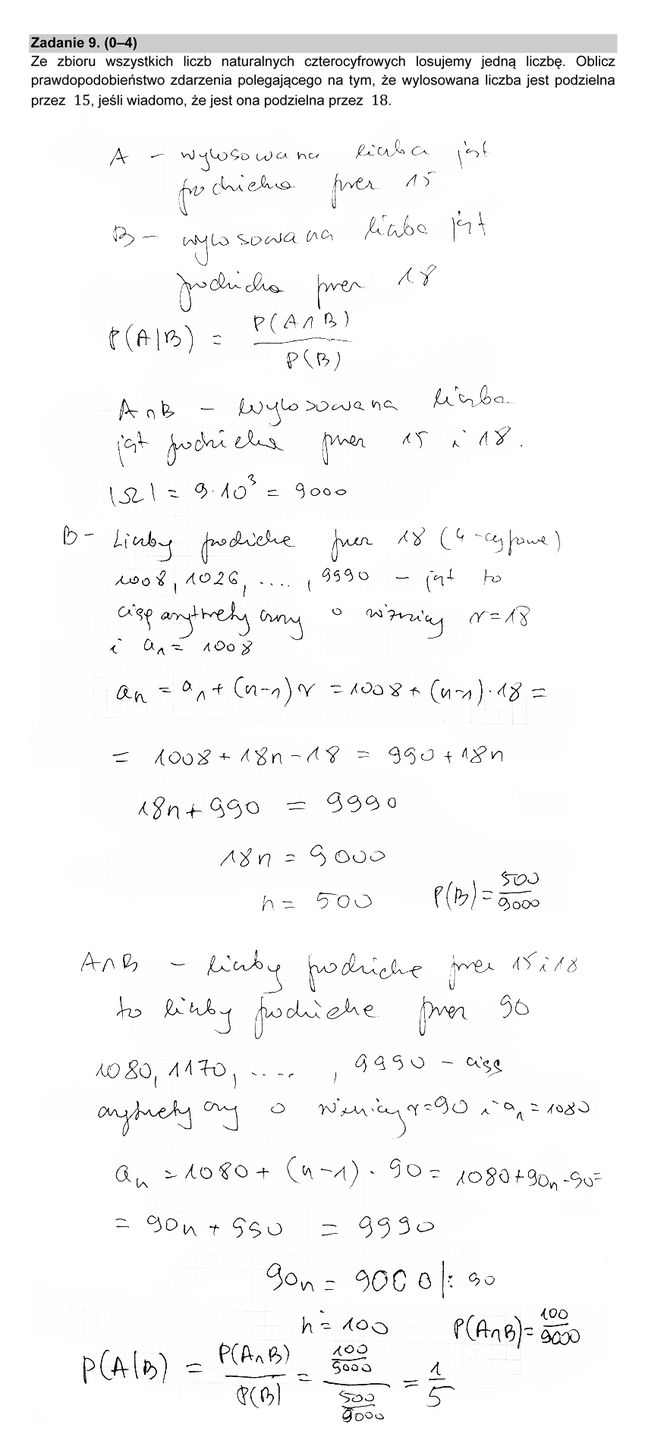 Zadanie 9. (0–4)
Ze zbioru wszystkich liczb naturalnych czterocyfrowych losujemy jedną liczbę. Oblicz
prawdopodobieństwo zdarzenia polegającego na tym, że wylosowana liczba jest podzielna
przez 15, jeśli wiadomo, że jest ona podzielna przez 18.
A – wylosowana liczba jest
podzielna przez 15
B – wylosowana liczba jest
podzielna przez 18
P(A|B) = P(A∩B) / P(B)
A∩B – wylosowana liczba
jest podzielna przez 15 i 18.
|Ω| = 9·10³ = 9000
B – Liczby podzielne przez 18 (4-cyfrowe)
1008, 1026, ...., 9990 – jest to
ciąg arytmetyczny o różnicy r=18
i a₁ = 1008
aₙ = a₁ + (n-1)r = 1008 + (n-1)·18 =
= 1008 + 18n - 18 = 990 + 18n
18n + 990 = 9990
18n = 9000
n = 500 P(B) = 500/9000
A∩B – liczby podzielne przez 15 i 18
to liczby podzielne przez 90
1080, 1170, ...., 9990 – ciąg
arytmetyczny o różnicy r=90 i a₁ = 1080
aₙ = 1080 + (n-1)·90 = 1080+90n-90=
= 90n + 990 = 9990
90n = 9000 |: 90
n = 100 P(A∩B) = 100/9000
P(A|B) = P(A∩B) / P(B) = (100/9000) / (500/9000) = 1/5